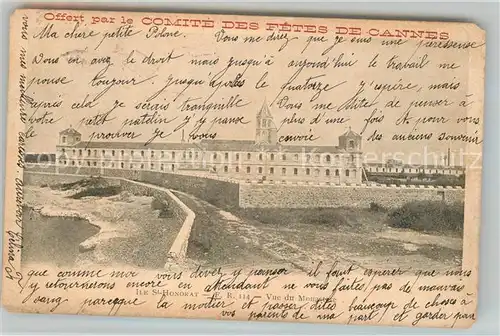 Offert par le COMITÉ DES FÊTES DE CANNES
Ma chère petite Polone. Vous me direz que je suis une paresseuse
Vous en avez le droit mais jusqu'à aujourd'hui le travail me
pousse toujour. Jusqu'après le quatorze j'espère, mais
après cela je serais tranquille Vous me dite de penser à
votre petit j'y pense plus d'une fois pour vous
le prouver je vous envoie des anciens souvenir
que comme moi vous devez y penser j'espère que nous
y retournerons encore en attendant ne vous faites pas de mauvais
sang parceque la moitier et passer dite beaucoup de choses à
vos parents de ma part et garder pour
vous mes meilleurs
ILE St-HONORAT — E. R. 114 — Vue du